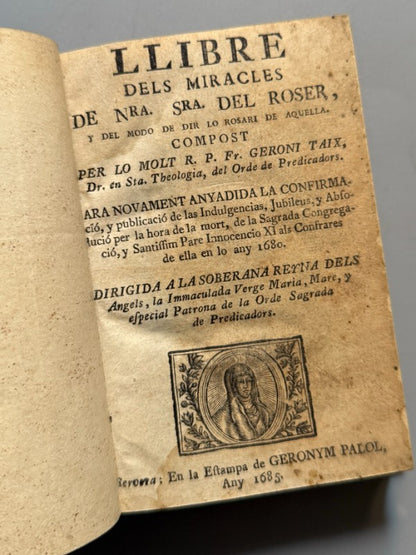 LLIBRE
DELS MIRACLES
DE NRA. SRA. DEL ROSER,
Y DEL MODO DE DIR LO ROSARI DE AQUELLA.
COMPOST
PER LO MOLT R. P. Fr. GERONI TAIX,
Dr. en Sta. Theologia, del Orde de Predicadors.
ARA NOVAMENT ANYADIDA LA CONFIRMA-
ció, y publicació de las Indulgencias, Jubileus, y Abso-
lució per la hora de la mort, de la Sagrada Congrega-
ció, y Santiſſim Pare Innocencio XI als Confrares
de ella en lo any 1680.
DIRIGIDA A LA SOBERANA REYNA DELS
Angels, la Immaculada Verge Maria, Mare, y
eſpecial Patrona de la Orde Sagrada
de Predicadors.
Gerona; En la Eſtampa de GERONYM PALOL,
Any 1685.